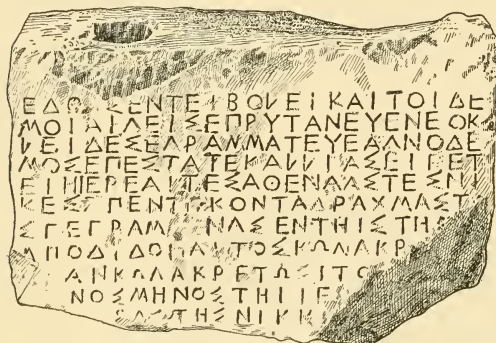 ΕΔΟΧΣΕΝΤΕΙΒΟΛΕΙΚΑΙΤΟΙΔΕ
ΜΟΙΑΙΓΕΙΣΕΠΡΥΤΑΝΕΥΕΝΕΟΚ
ΛΕΙΔΕΣΕΓΡΑΜΜΑΤΕΥΕΑΓΝΟΔΕ
ΜΟΣΕΠΕΣΤΑΤΕΚΑΛΛΙΑΣΕΙΠΕΤ
ΕΙΗΙΕΡΕΑΙΤΕΣΑΘΕΝΑΑΣΤΕΣΝΙ
ΚΕΣΠΕΝΤΕΚΟΝΤΑΔΡΑΧΜΑΣΤ
ΣΓΕΓΡΑΜ ΝΑΣΕΝΤΗΙΣΤΗΛ
ΑΠΟΔΙΔΟΝΑΙΤΟΣΚΩΛΑΚΡ
ΑΝΚΩΛΑΚΡΕΤΩΣΙΤΟ
ΝΟΣΜΗΝΟΣΤΗΙΙΕ
ΤΗΣΝΙΚΗ